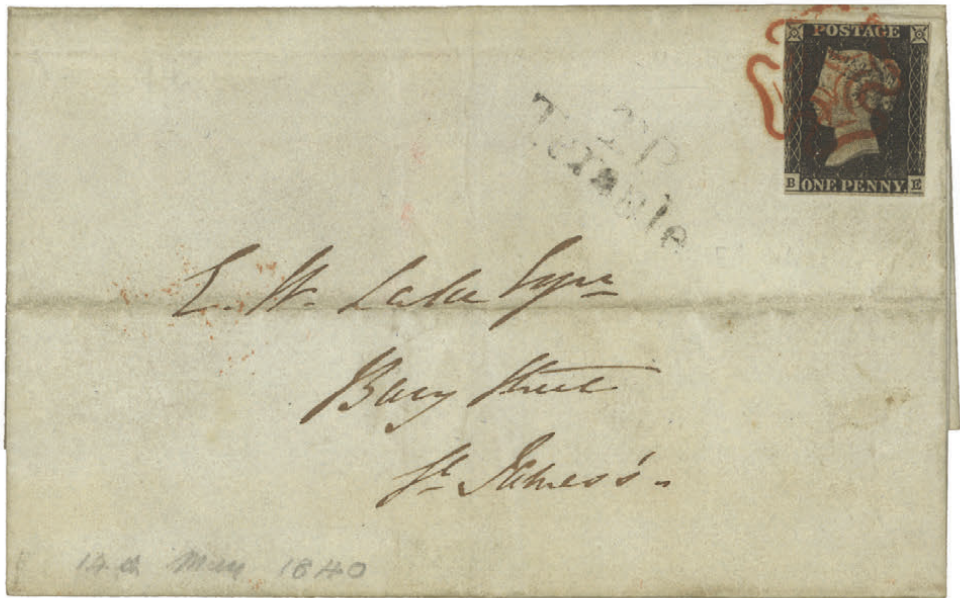 POSTAGE
B ONE PENNY E
T.P
E. W. Lake Esqre
Bury Street
St. James's.
14th May 1840